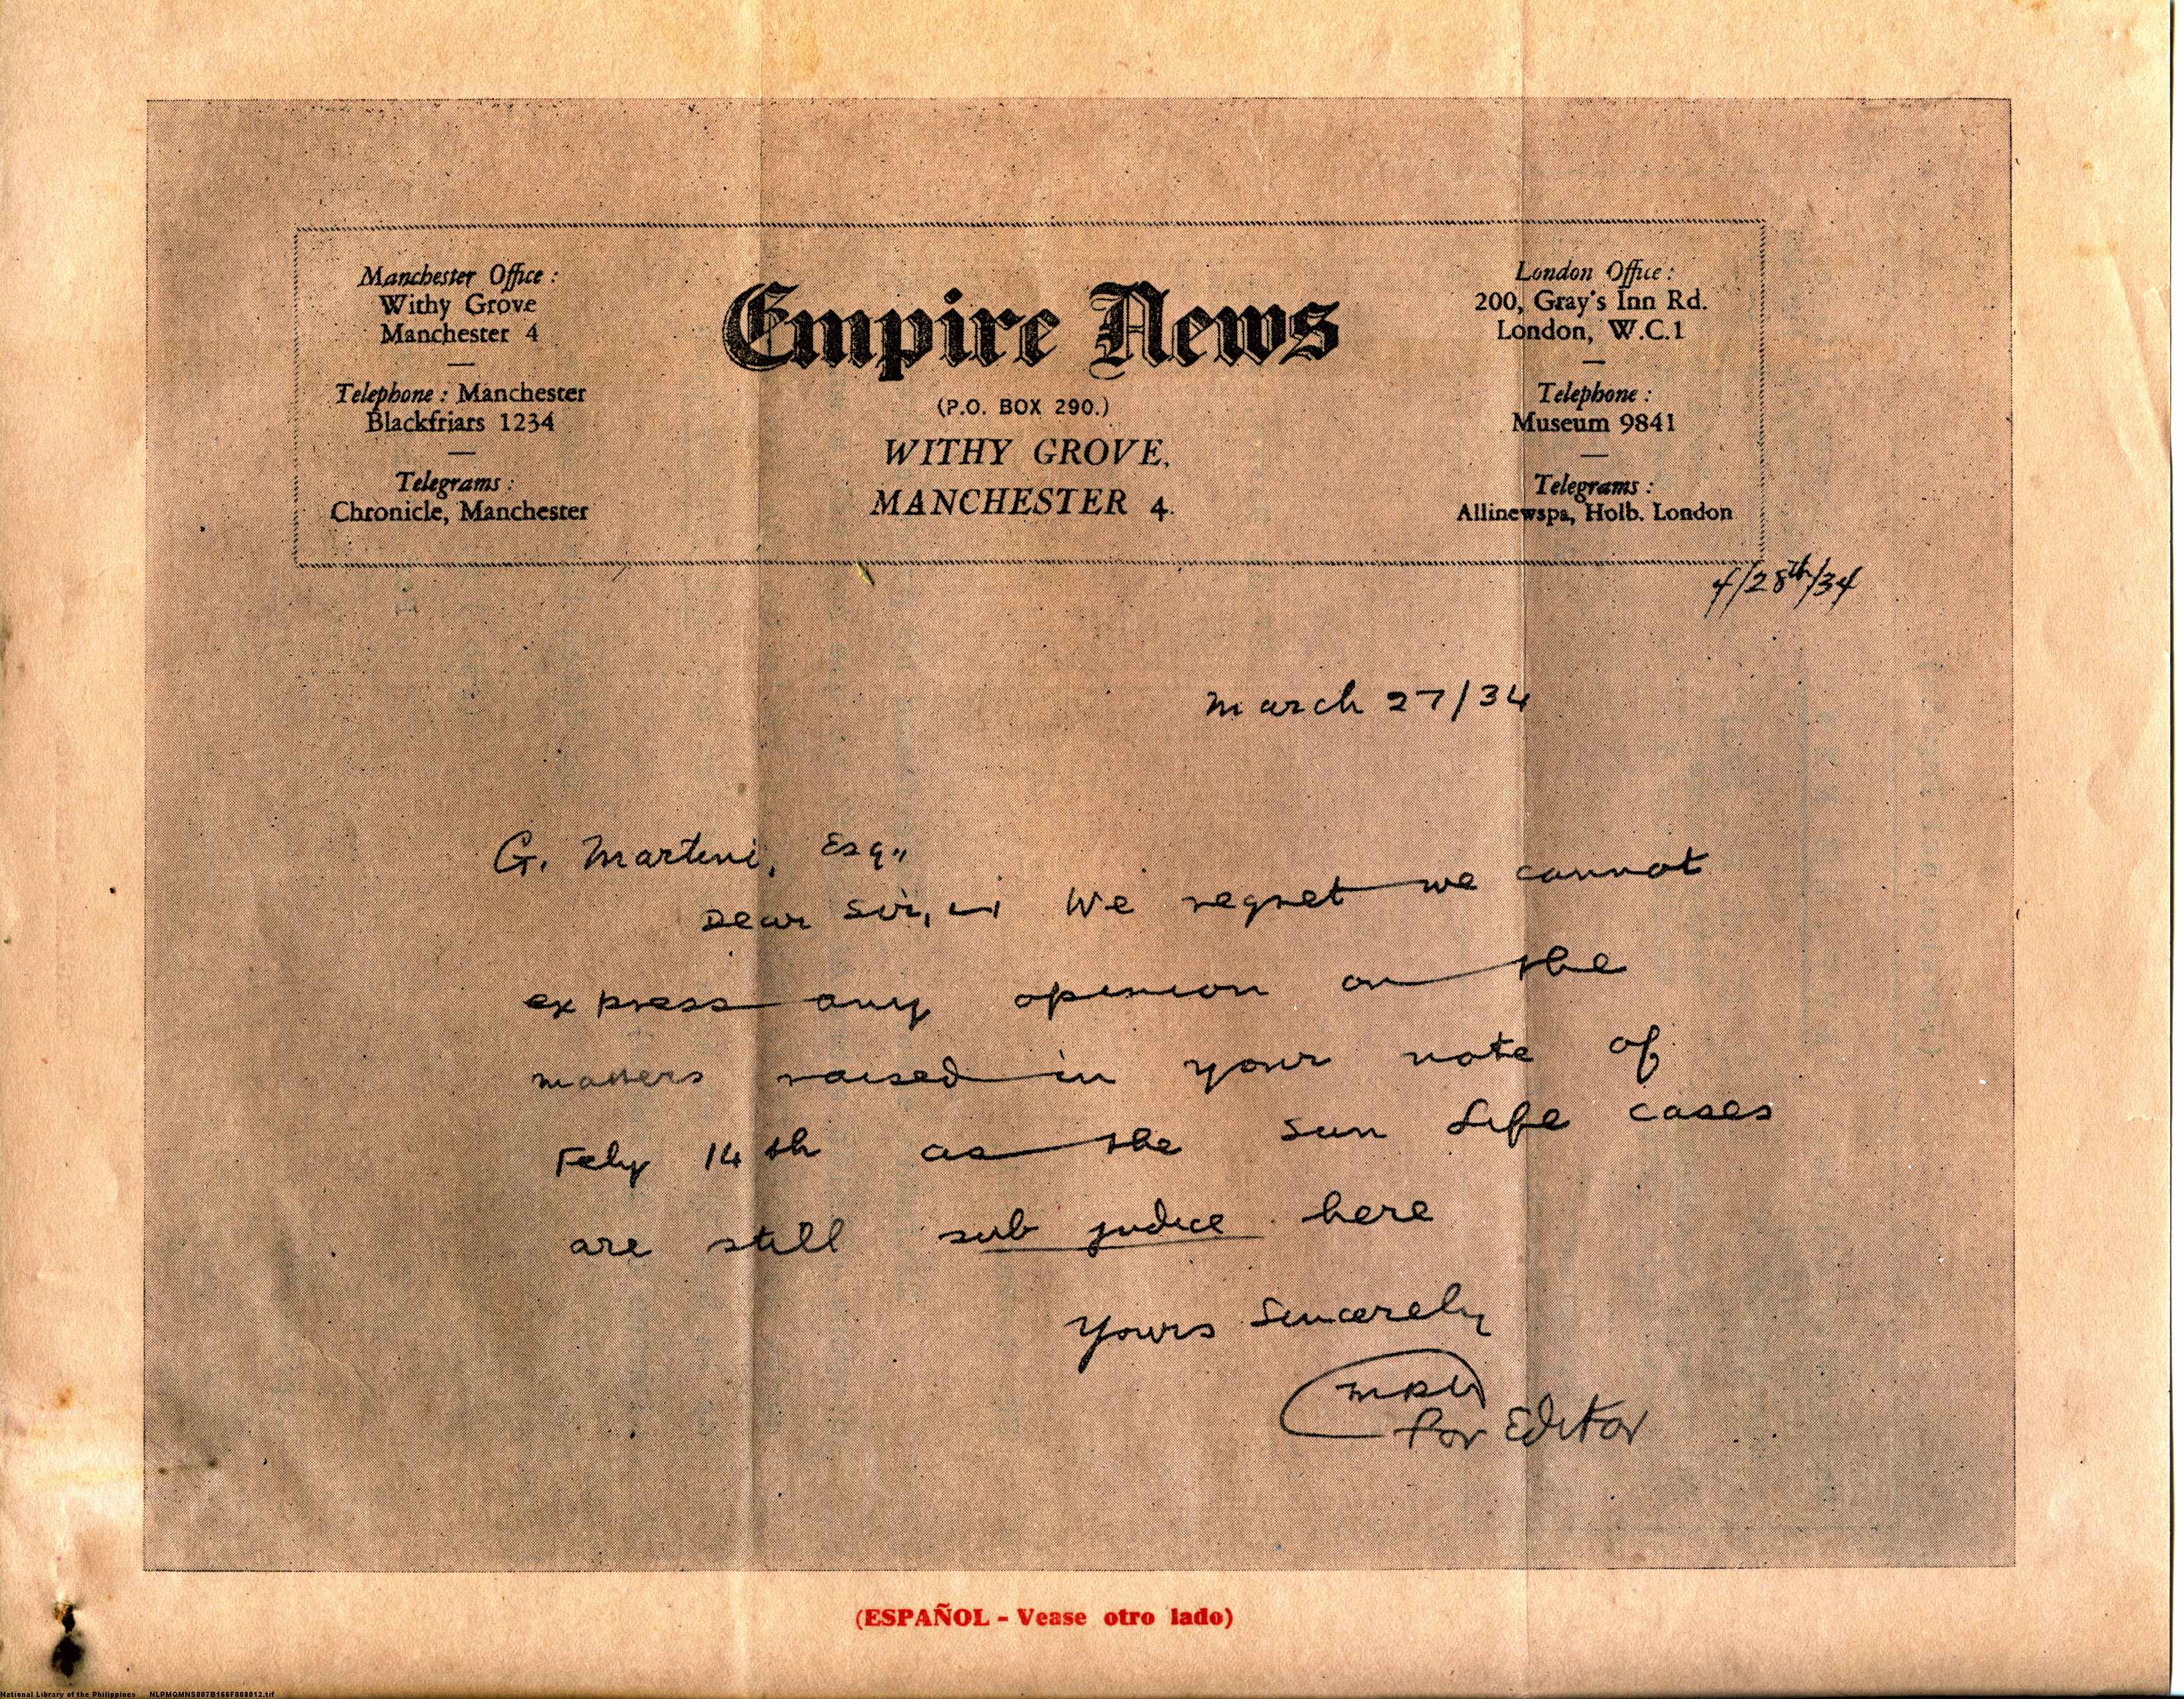 Manchester Office :
Withy Grove
Manchester 4
Telephone : Manchester
Blackfriars 1234
Telegrams :
Chronicle, Manchester
Empire News
(P.O. BOX 290.)
WITHY GROVE,
MANCHESTER 4.
London Office :
200, Gray's Inn Rd.
London, W.C.1
Telephone :
Museum 9841
Telegrams :
Allinewspa, Holb. London
4/28th/34
March 27/34
G. Martini, Esq,,
Dear Sir, We regret we cannot
express any opinion on the
matters raised in your note of
Feby 14th as the Sun Life cases
are still sub judice here
Yours Sincerely
for Editor
(ESPAÑOL - Vease otro lado)
National Library of the Philippines NLPMQMNS007B166F000012.tif